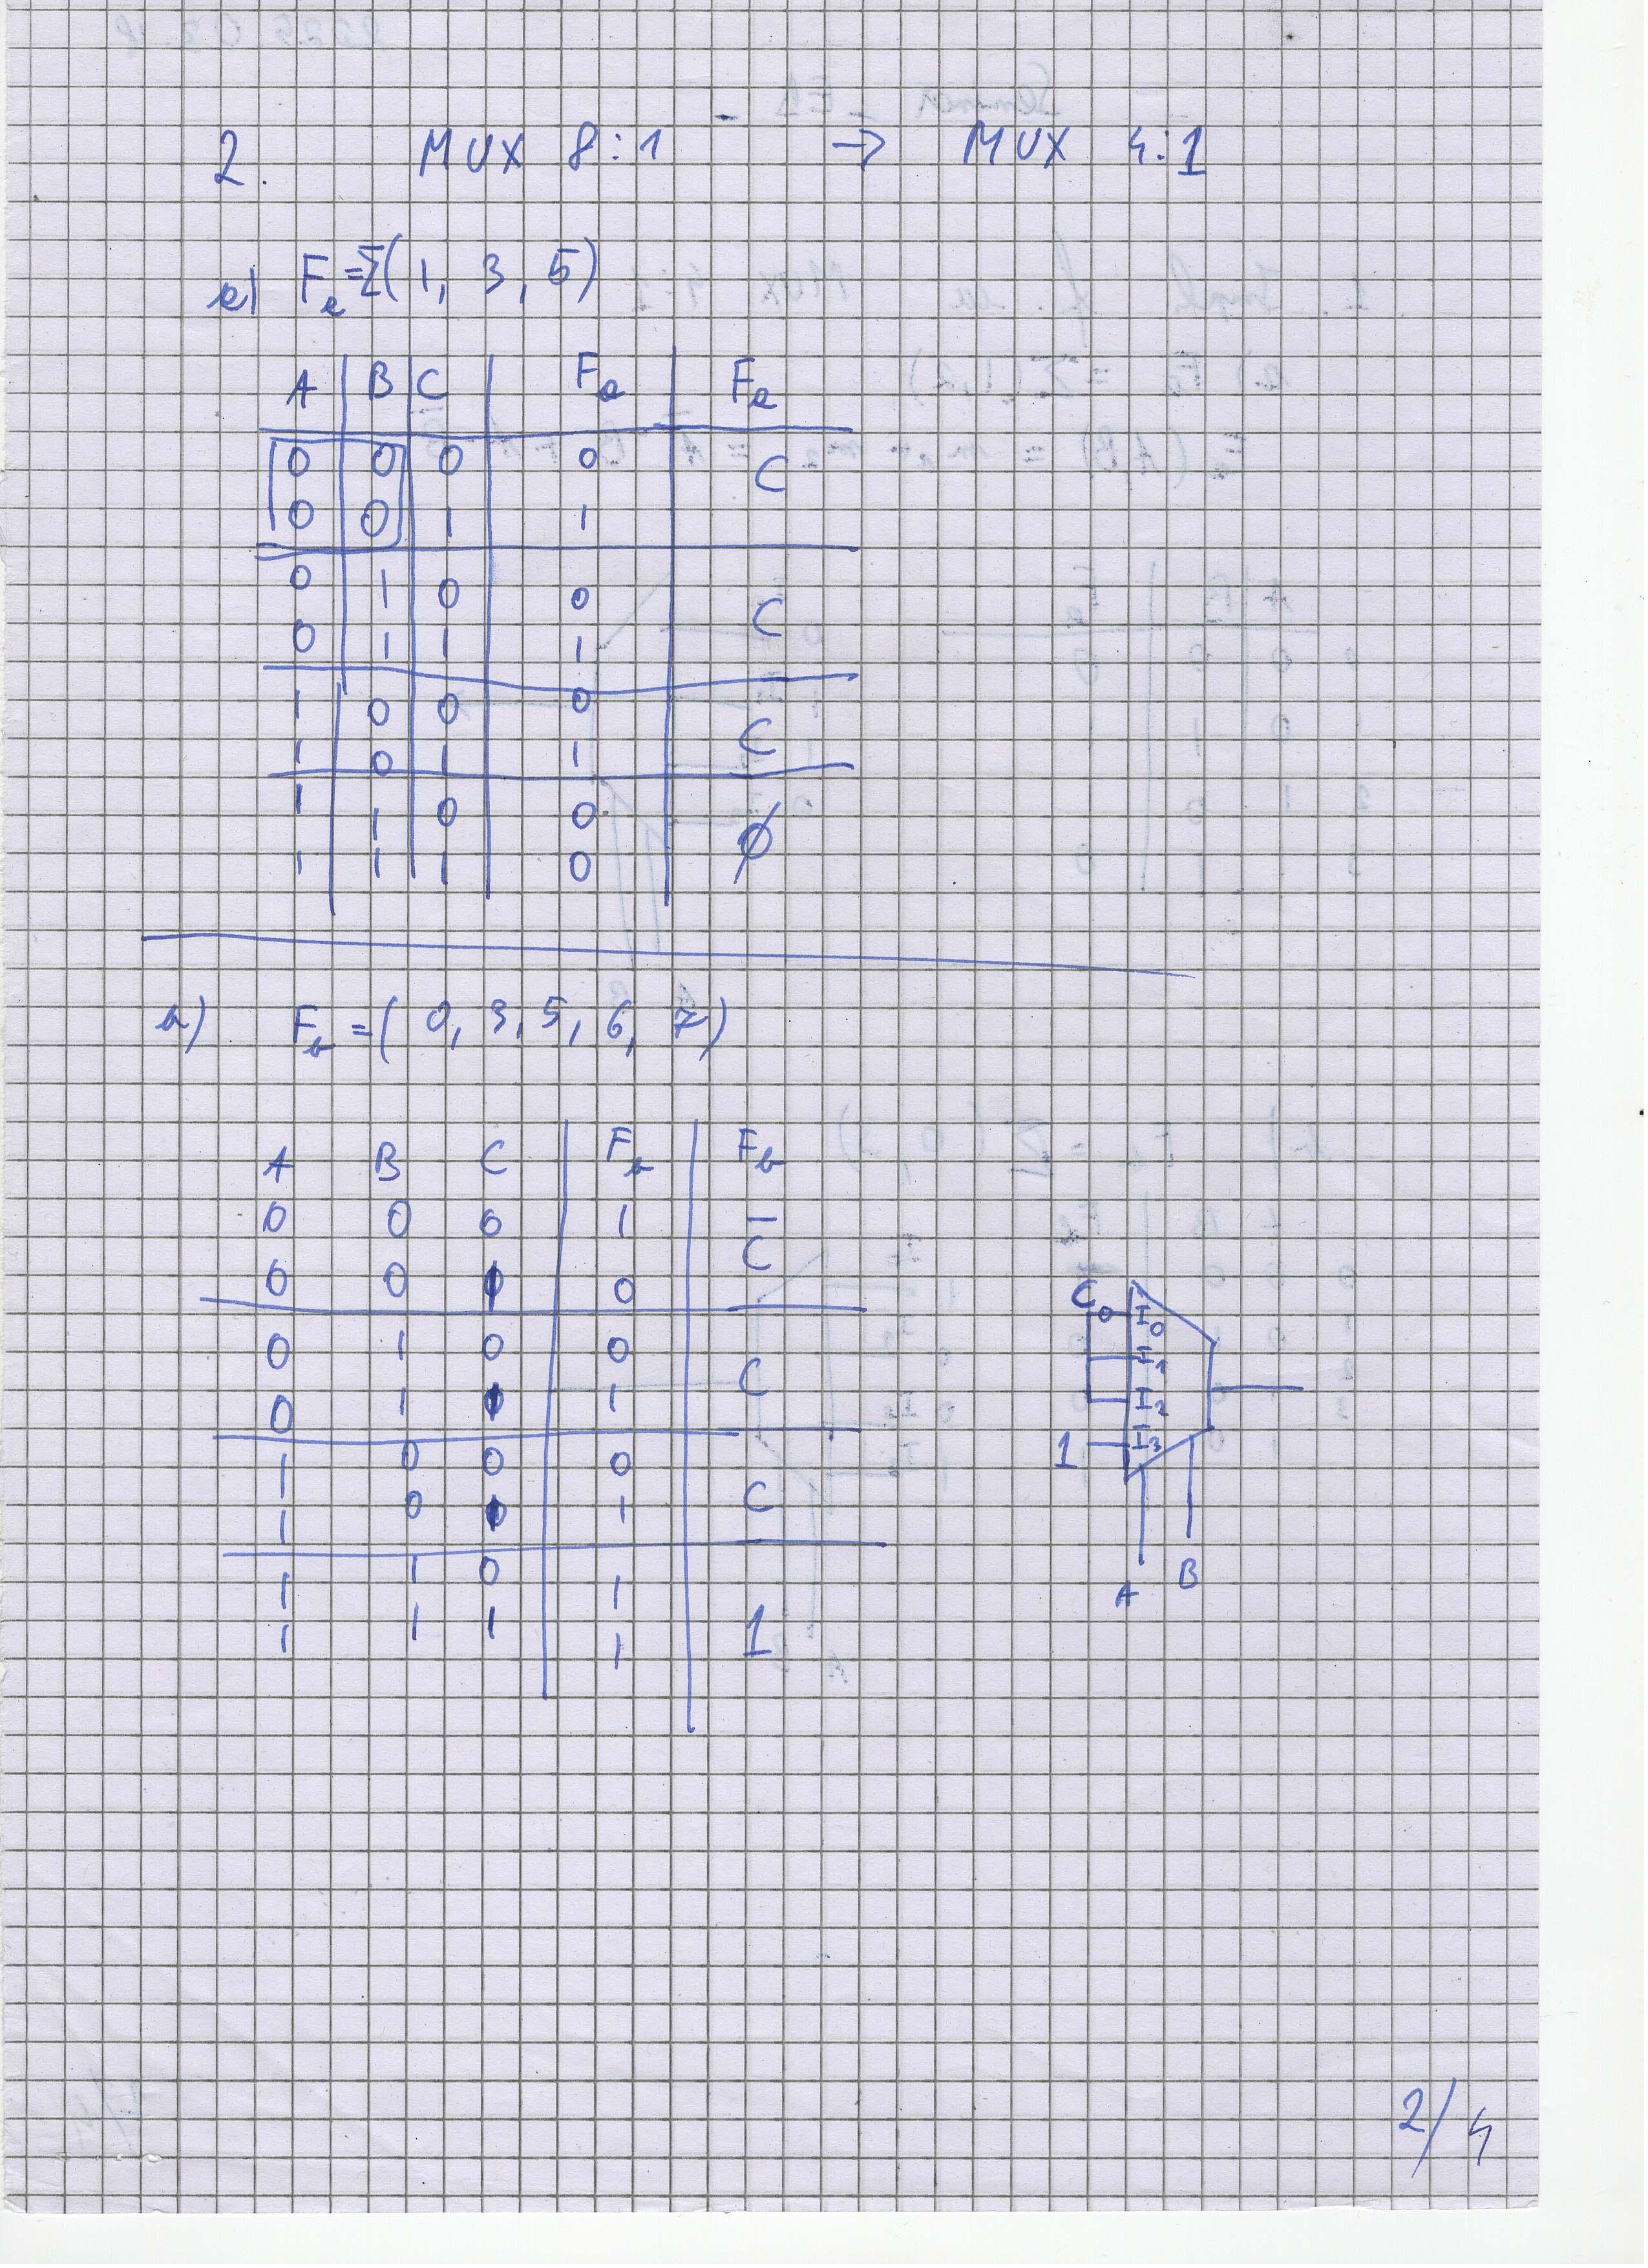 2. MUX 8:1 → MUX 4:1
a) Fa = Σ( 1, 3, 5)
A B C Fa Fa
0 0 0 0 C
0 0 1 1
0 1 0 0 C
0 1 1 1
1 0 0 0 C
1 0 1 1
1 1 0 0 ∅
1 1 1 0
b) Fb = ( 0, 3, 5, 6, 7)
A B C Fb Fb
0 0 0 1 C̅
0 0 1 0
0 1 0 0 C
0 1 1 1
1 0 0 0 C
1 0 1 1
1 1 0 1 1
1 1 1 1
C I0
I1
I2
1 I3
A B
2/4